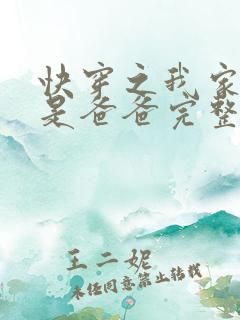 快穿之我家
是爸爸完整
王二妮
未经同意禁止转载